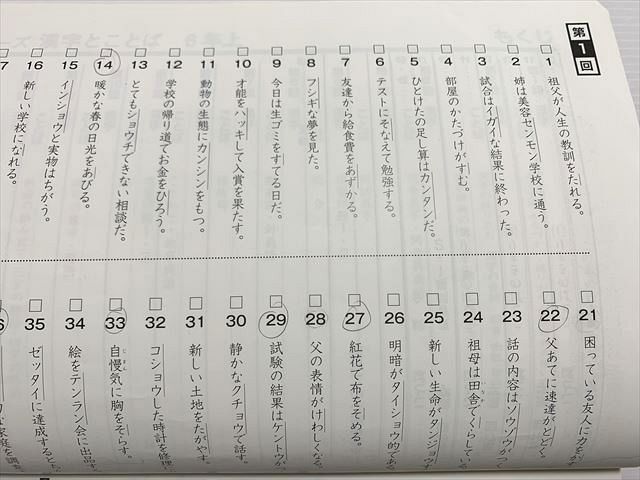 第1回
1 祖父が人生の教訓をたれる。
2 姉は美容センモン学校に通う。
3 試合はイガイな結果に終わった。
4 部屋のかたづけがすむ。
5 ひとけたの足し算はカンタンだ。
6 テストにそなえて勉強する。
7 友達から給食費をあずかる。
8 フシギな夢を見た。
9 今日は生ゴミをすてる日だ。
10 才能をハッキして入賞を果たす。
11 動物の生態にカンシンをもつ。
12 学校の帰り道でお金をひろう。
13 とてもショウチできない相談だ。
14 暖かな春の日光をあびる。
15 インショウと実物はちがう。
16 新しい学校になれる。
21 困っている友人に力をか
22 父あてに速達がとどく。
23 話の内容はソウゾウがつく
24 祖母は田舎でくらしている
25 新しい生命がタンジョウす
26 明暗がタイショウ的であ
27 紅花で布をそめる。
28 父の表情がけわしくなる。
29 試験の結果はケントウがつ
30 静かなクチョウで話す。
31 新しい土地をたがやす。
32 コショウした時計を修理
33 自慢気に胸をそらす。
34 絵をテンラン会に出品す
35 ゼッタイに達成すると